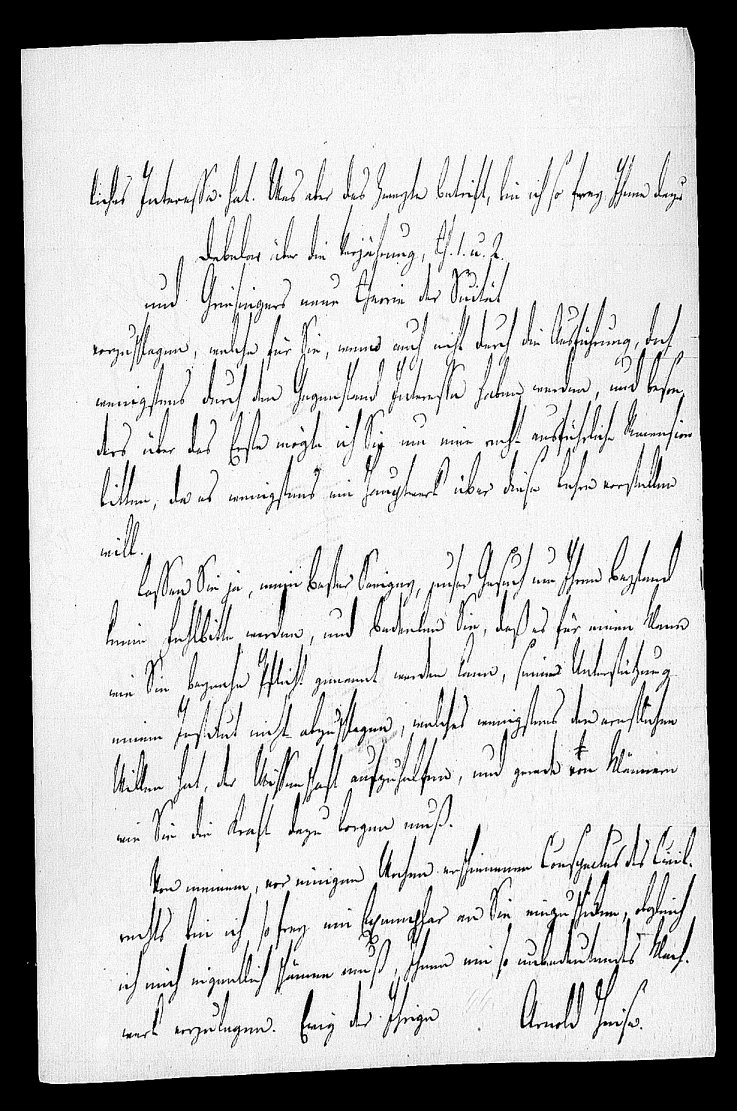 liches Interesse hat. Was aber das Zweyte betrift, bin ich so frey Ihnen dazu
Dabelow über die Verjährung, Th. 1. u. 2.
und Griesingers neue Theorie der Suität
vorzuschlagen, welche für Sie, wenn auch nicht durch die Ausführung, doch
wenigstens durch den Gegenstand Interesse haben werden, und beson
ders über das Erste mögte ich Sie um eine recht ausführliche Recension
bitten, da es wenigstens ein Hauptwerk über diese Lehre vorstellen
will.
Lassen Sie ja, mein bester Savigny, unser Gesuch um Ihren Beystand
keine Fehlbitte werden, und bedenken Sie, daß es für einen Mann
wie Sie beynahe Pflicht genannt werden kann, seine Unterstützung
einem Institut nicht abzuschlagen, welches wenigstens den ernstlichen
Willen hat, der Wissenschaft aufzuhelfen, und gerade von Männern
wie Sie die Kraft dazu borgen muß.
Von meinem, vor einigen Wochen erschienenen Conspectus des Civil-
rechts bin ich so frey ein Exemplar an Sie einzuschicken, obgleich
ich mich eigentlich schämen muß, Ihnen ein so unbedeutendes Mach-
werk vorzulegen. Ewig der Ihrige Arnold Heise.